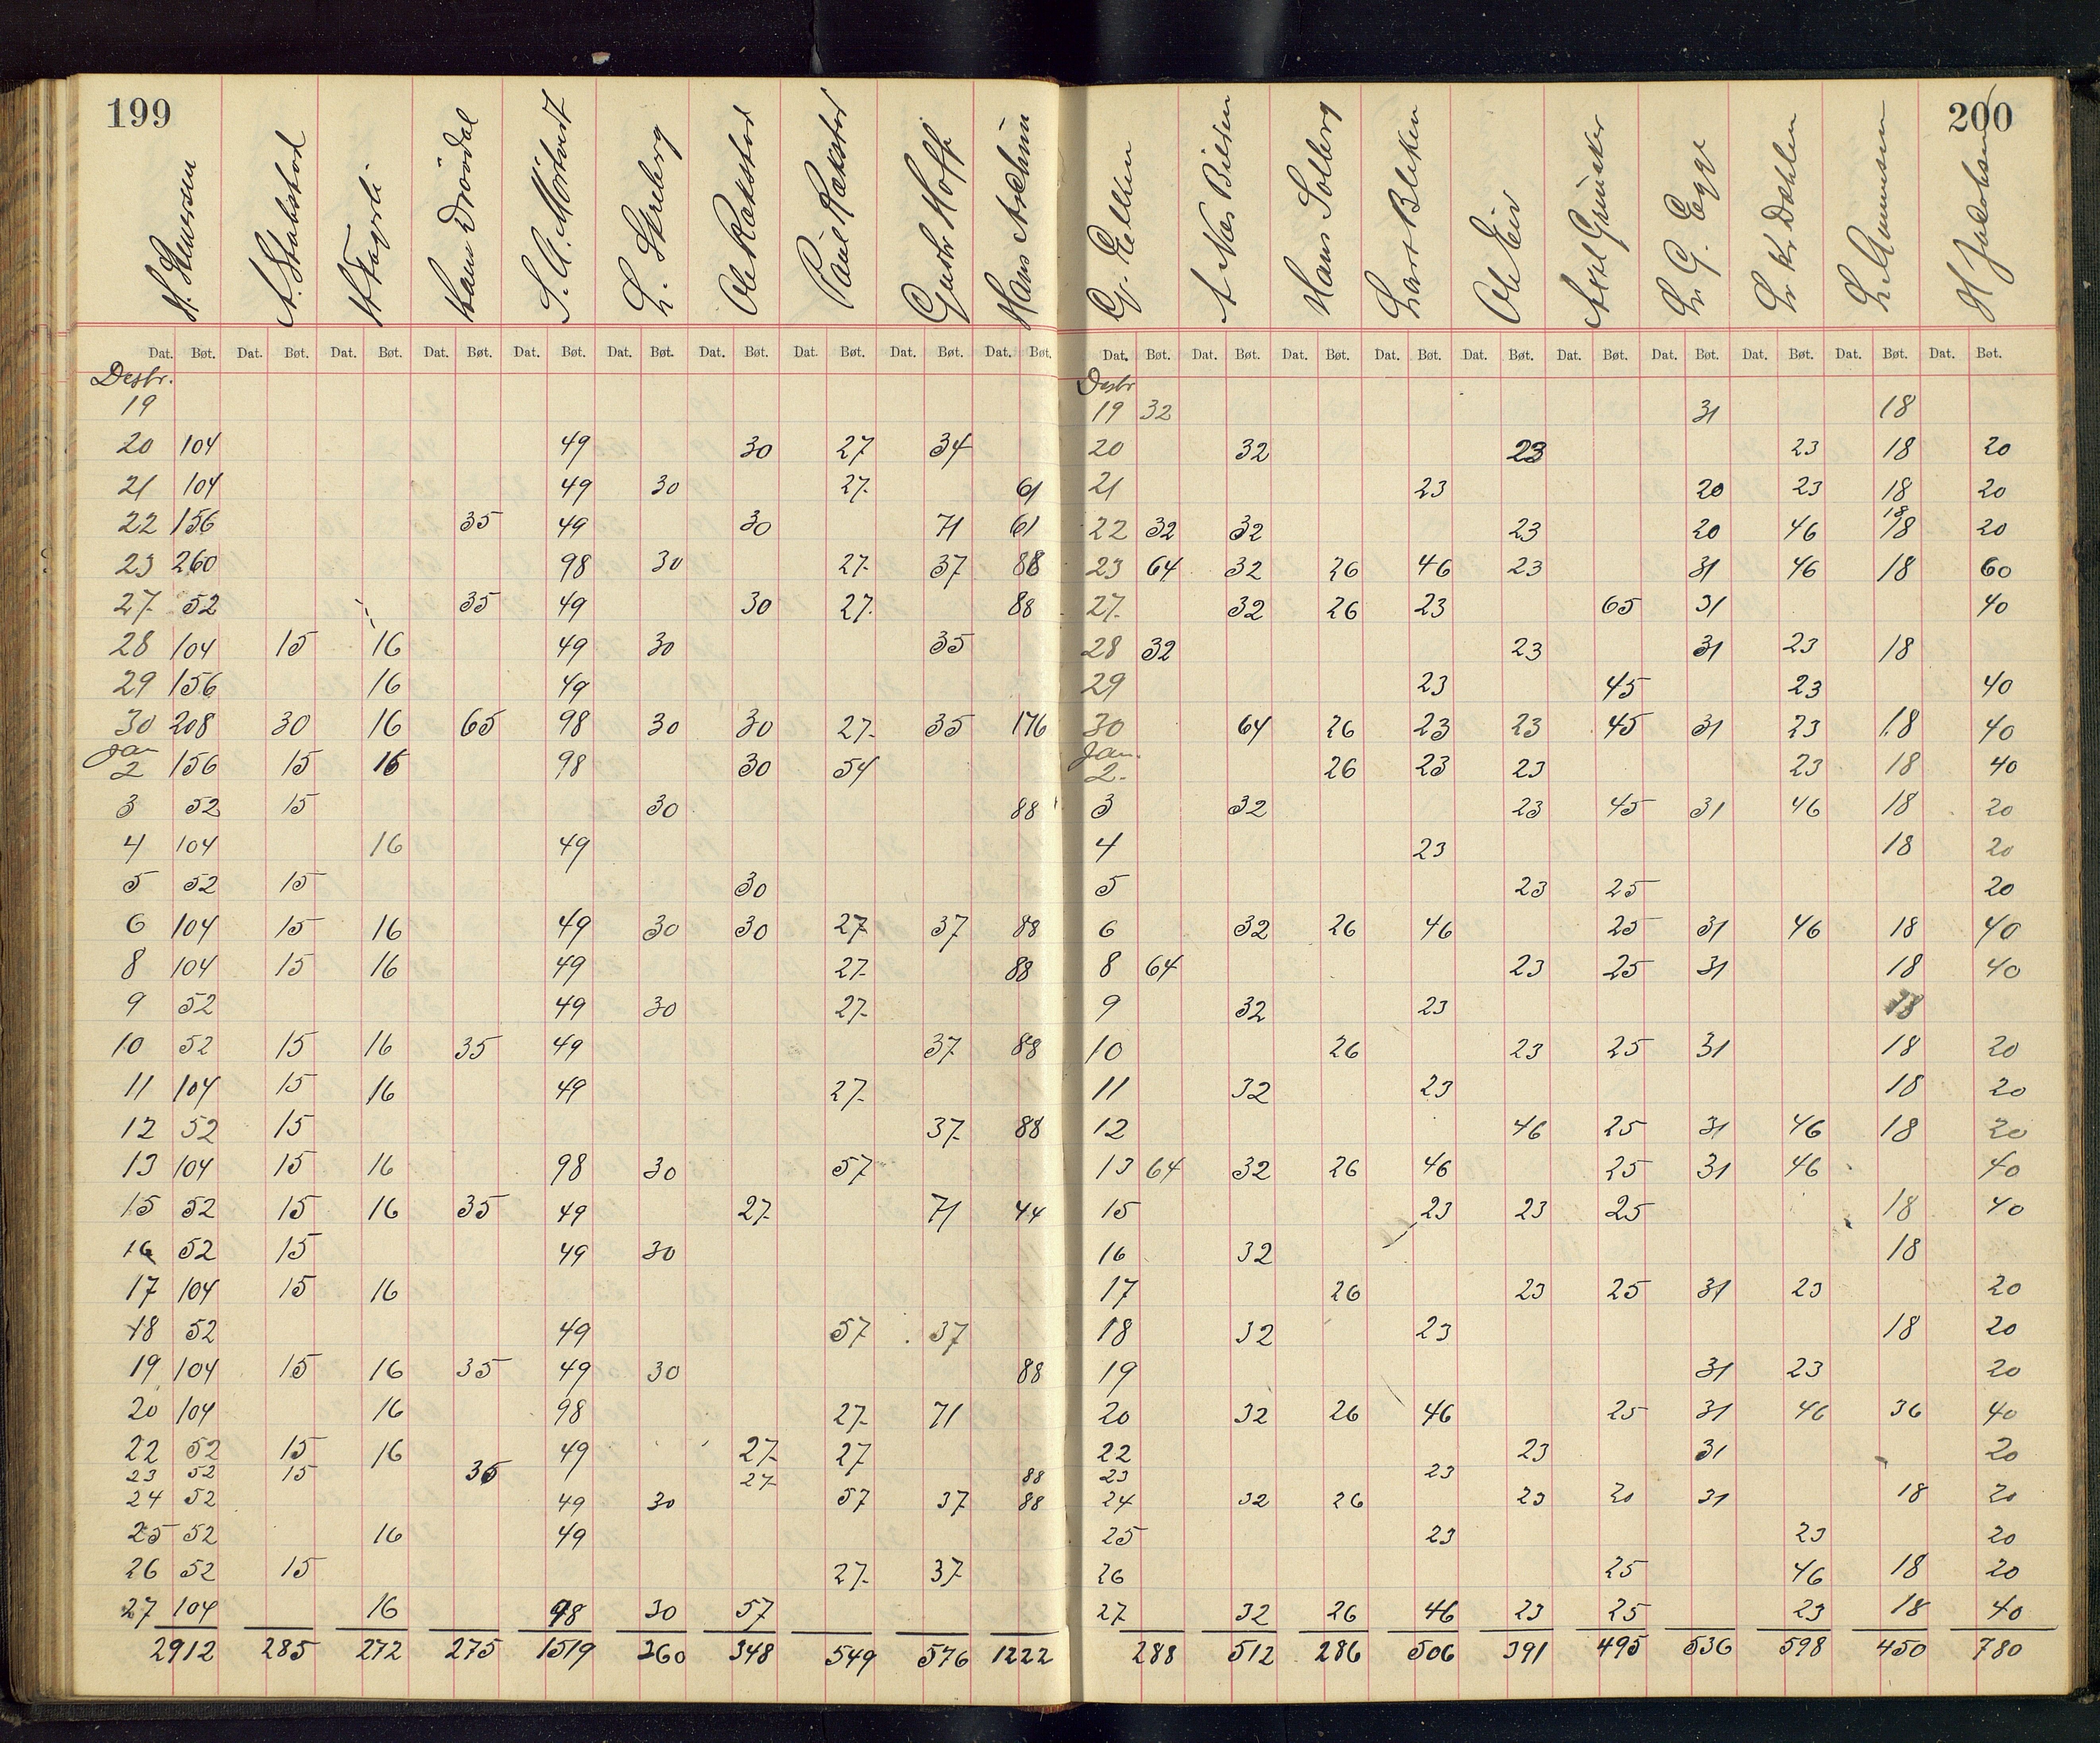 199
200
H. Stenersen A. Stakstad H Fagerli Hans Drövdal S. A. Mörtvedt L. Skreberg Ole Rakstad Paul Rakstad Gustv Hoff Hans Archim
G. Elken A Næs Bilden Hans Solberg Lars Bleken Ole Eid Axel Grinaker Lr. G. Egge Lr Kr Dæhlen L. Gunnersen H Jakobsen
Dat. Bøt. Dat. Bøt. Dat. Bøt. Dat. Bøt. Dat. Bøt. Dat. Bøt. Dat. Bøt. Dat. Bøt. Dat. Bøt. Dat. Bøt.
Dat. Bøt. Dat. Bøt. Dat. Bøt. Dat. Bøt. Dat. Bøt. Dat. Bøt. Dat. Bøt. Dat. Bøt. Dat. Bøt. Dat. Bøt.
Desbr.
19
20 104 49 30 27 34
21 104 49 30 27. 61
22 156 35 49 30 71 61
23 260 98 30 27. 37 88
27. 52 35 49 30 27. 88
28 104 15 16 49 30 35
29 156 16 49
30 208 30 16 65 98 30 30 27. 35 176
Jan
2 156 15 16 98 30 54
3 52 15 30 88
4 104 16 49
5 52 15 30
6 104 15 16 49 30 30 27 37 88
8 104 15 16 49 27. 88
9 52 49 30 27.
10 52 15 16 35 49 37 88
11 104 15 16 49 27.
12 52 15 37. 88
13 104 15 16 98 30 57
15 52 15 16 35 49 27. 71 44
16 52 15 49 30
17 104 15 16
18 52 49 57 37
19 104 15 16 35 49 30 88
20 104 16 98 27. 71
22 52 15 16 49 27. 27
23 52 15 35 27. 88
24 52 49 30 57 37 88
25 52 16 49
26 52 15 27. 37
27 104 16 98 30 57
2912 285 272 275 1519 360 348 549 576 1222
Desbr
19 32 31 18
20 32 23 23 18 20
21 23 20 23 18 20
22 32 32 23 20 46 18 18 20
23 64 32 26 46 23 31 46 18 60
27. 32 26 23 65 31 40
28 32 23 31 23 18
29 23 45 23 40
30 64 26 23 23 45 31 23 18 40
Jan.
2. 26 23 23 23 18 40
3 32 23 45 31 46 18 20
4 23 18 20
5 23 25 20
6 32 26 46 25 31 46 18 40
8 64 23 25 31 18 40
9 32 23 18
10 26 23 25 31 18 20
11 32 23 18 20
12 46 25 31 46 18 20
13 64 32 26 46 25 31 46 40
15 23 23 25 18 40
16 32 18
17 26 23 25 31 23 20
18 32 23 18 20
19 31 23 20
20 32 26 46 25 31 46 36 40
22 23 31 20
23 23
24 32 26 23 20 31 18 20
25 23 23 20
26 25 46 18 20
27. 32 26 46 23 25 23 18 40
288 512 286 506 391 495 536 598 450 780